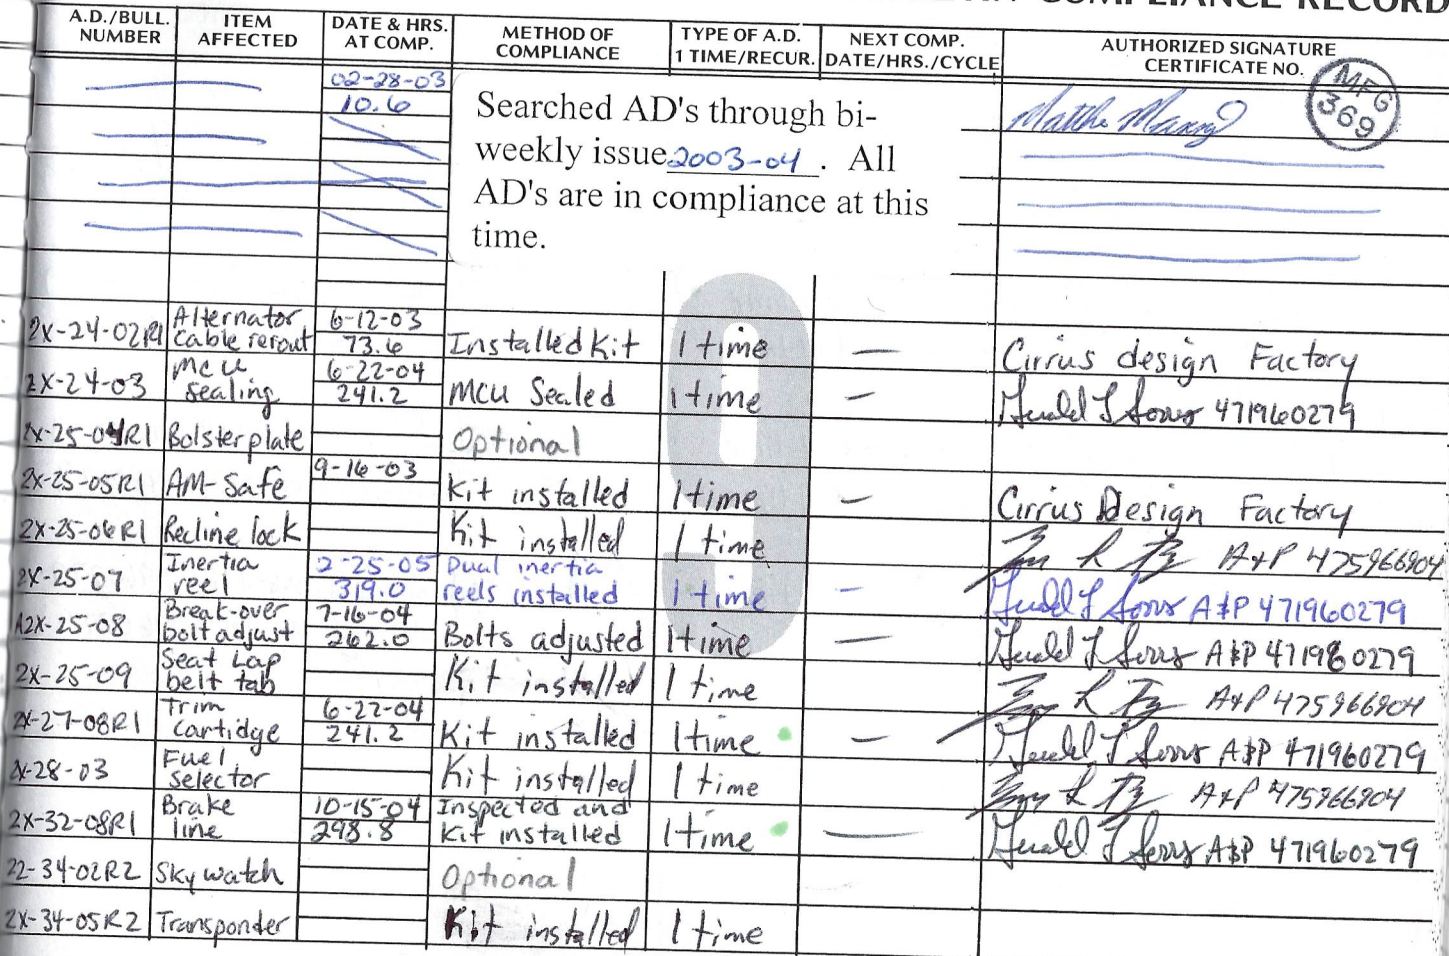 COMPLIANCE RECORD
A.D./BULL. NUMBER ITEM AFFECTED DATE & HRS. AT COMP. METHOD OF COMPLIANCE TYPE OF A.D. 1 TIME/RECUR. NEXT COMP. DATE/HRS./CYCLE AUTHORIZED SIGNATURE CERTIFICATE NO.
02-28-03
10.6
Searched AD's through bi-
weekly issue 2003-04. All
AD's are in compliance at this
time.
MFG
369
2X-24-02R1 Alternator cable rerout 6-12-03 73.6 Installed Kit 1 time — Cirrus design Factory
2X-24-03 MCU sealing 6-22-04 241.2 MCU Sealed 1 time — 471960279
2X-25-04R1 Bolster plate Optional
2X-25-05R1 AM-Safe 9-16-03 Kit installed 1 time — Cirrus Design Factory
2X-25-06R1 Recline lock Kit installed 1 time A&P 475966904
2X-25-07 Inertia reel 2-25-05 319.0 Dual inertia reels installed 1 time — A&P 471960279
A2X-25-08 Break-over bolt adjust 7-16-04 262.0 Bolts adjusted 1 time — A&P 471960279
2X-25-09 Seat Lap belt tab Kit installed 1 time A&P 475966904
2X-27-08R1 Trim cartidge 6-22-04 241.2 Kit installed 1 time — A&P 471960279
2X-28-03 Fuel selector Kit installed 1 time A&P 475966904
2X-32-08R1 Brake line 10-15-04 298.8 Inspected and Kit installed 1 time — A&P 471960279
22-34-02R2 Skywatch Optional
2X-34-05R2 Transponder Kit installed 1 time